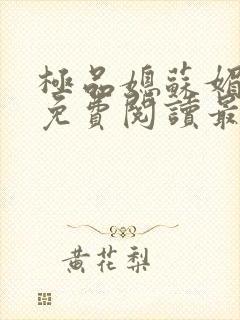 極品媳蘇媚
免費閱讀最
黄花梨